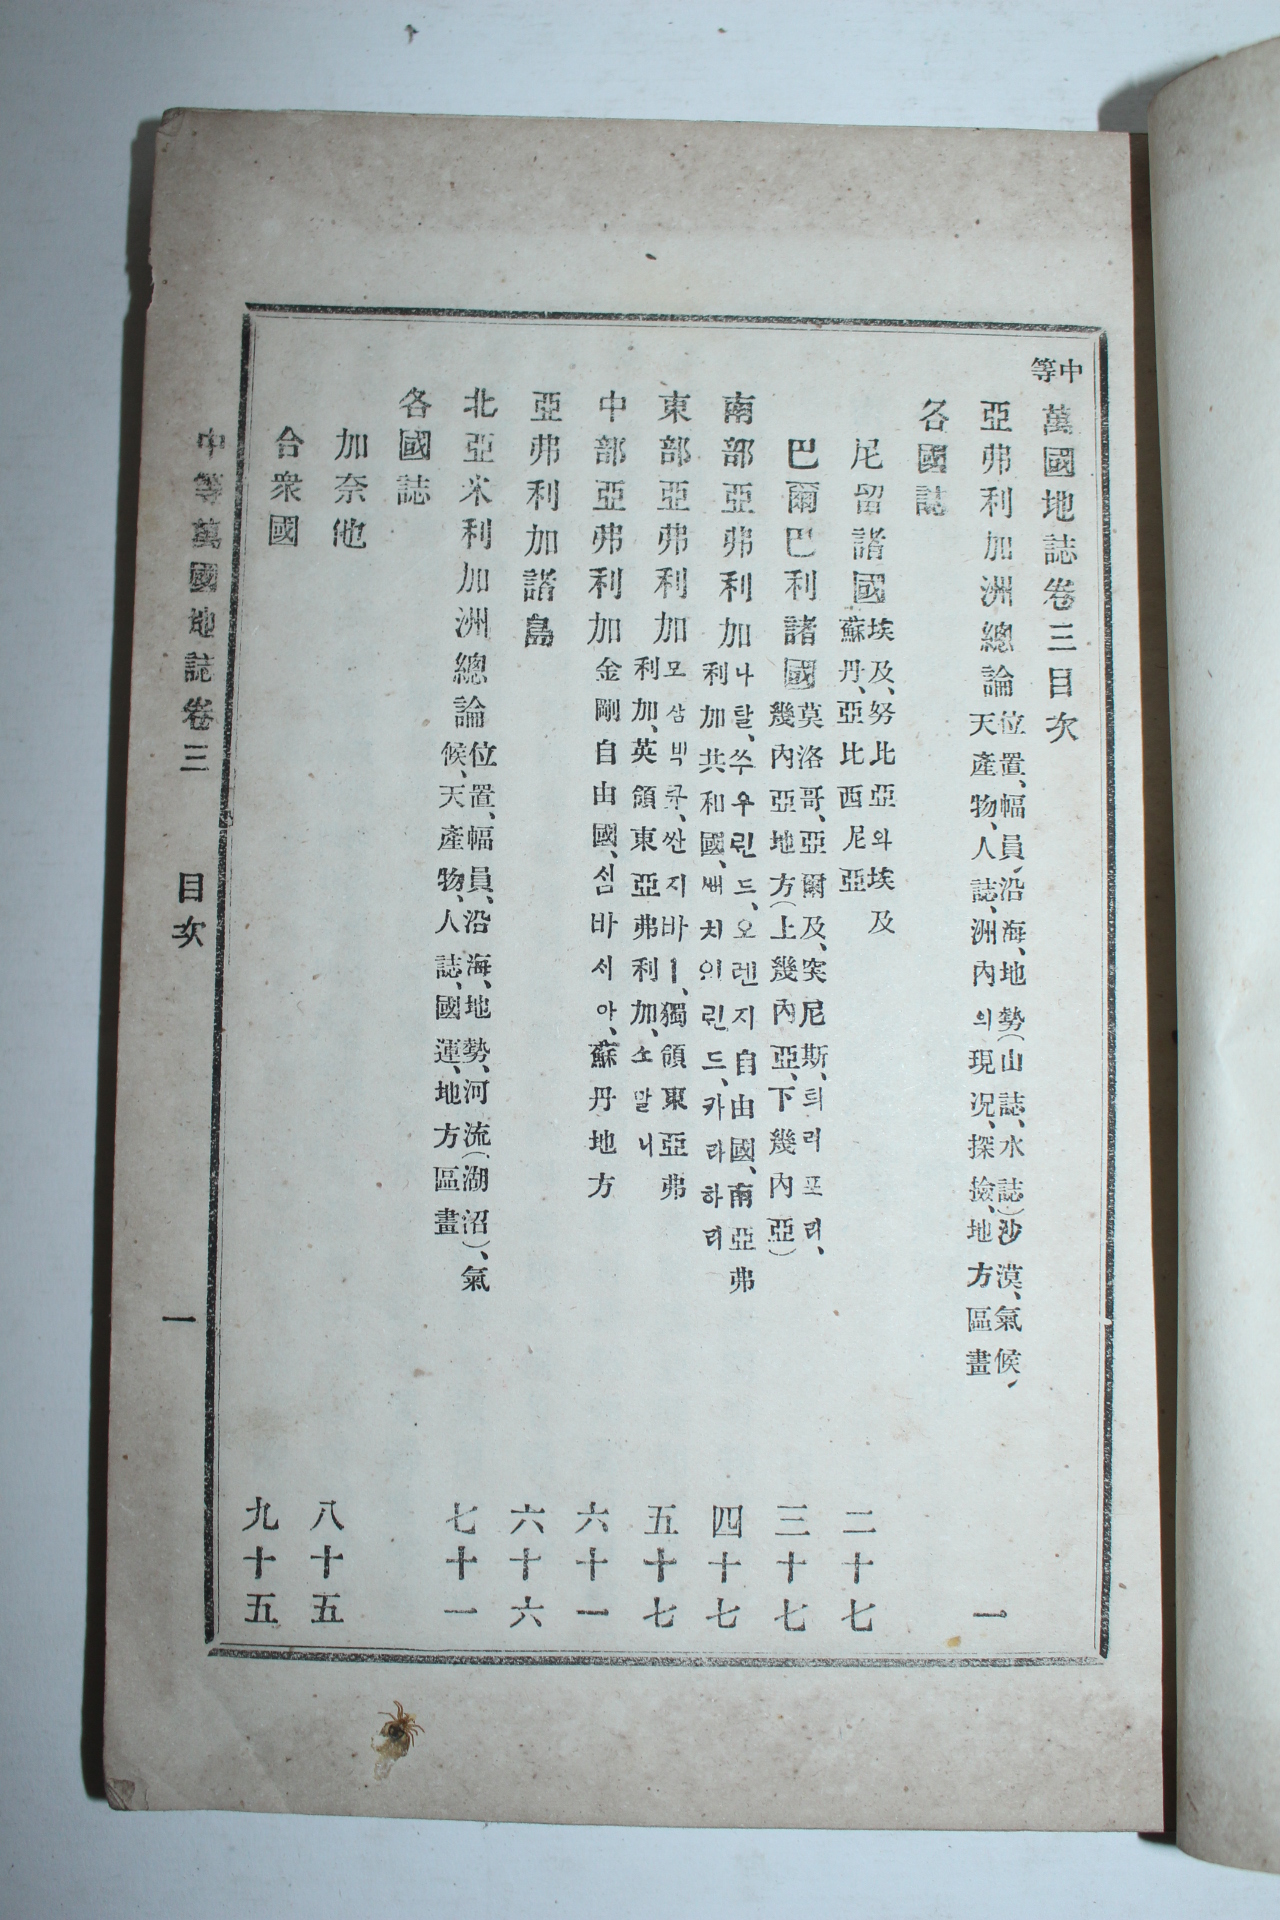 中等 萬國地誌卷三目次
亞弗利加洲總論 位置、幅員、沿海、地勢(山誌、水誌)沙漠、氣候、天產物、人誌、洲內의現況、探撿、地方區畫 一
各國誌
尼留諸國 埃及、努比亞와埃及蘇丹、亞比西尼亞 二十七
巴爾巴利諸國 莫洛哥、亞爾及、突尼斯、틔리포리、幾內亞地方(上幾內亞、下幾內亞) 三十七
南部亞弗利加 나탈、쑤우린드、오렌지自由國、南亞弗利加共和國、쌔치의린드、카라하리 四十七
東部亞弗利加 모삼빅쿠、싼지바ㅣ、獨領東亞弗利加、英領東亞弗利加、소말니 五十七
中部亞弗利加 金剛自由國、섬바시아、蘇丹地方 六十一
亞弗利加諸島 六十六
北亞米利加洲總論 位置、幅員、沿海、地勢、河流(湖沼)、氣候、天產物、人誌、國運、地方區畫 七十一
各國誌
加奈他 八十五
合衆國 九十五
中等萬國地誌卷三 目次 一